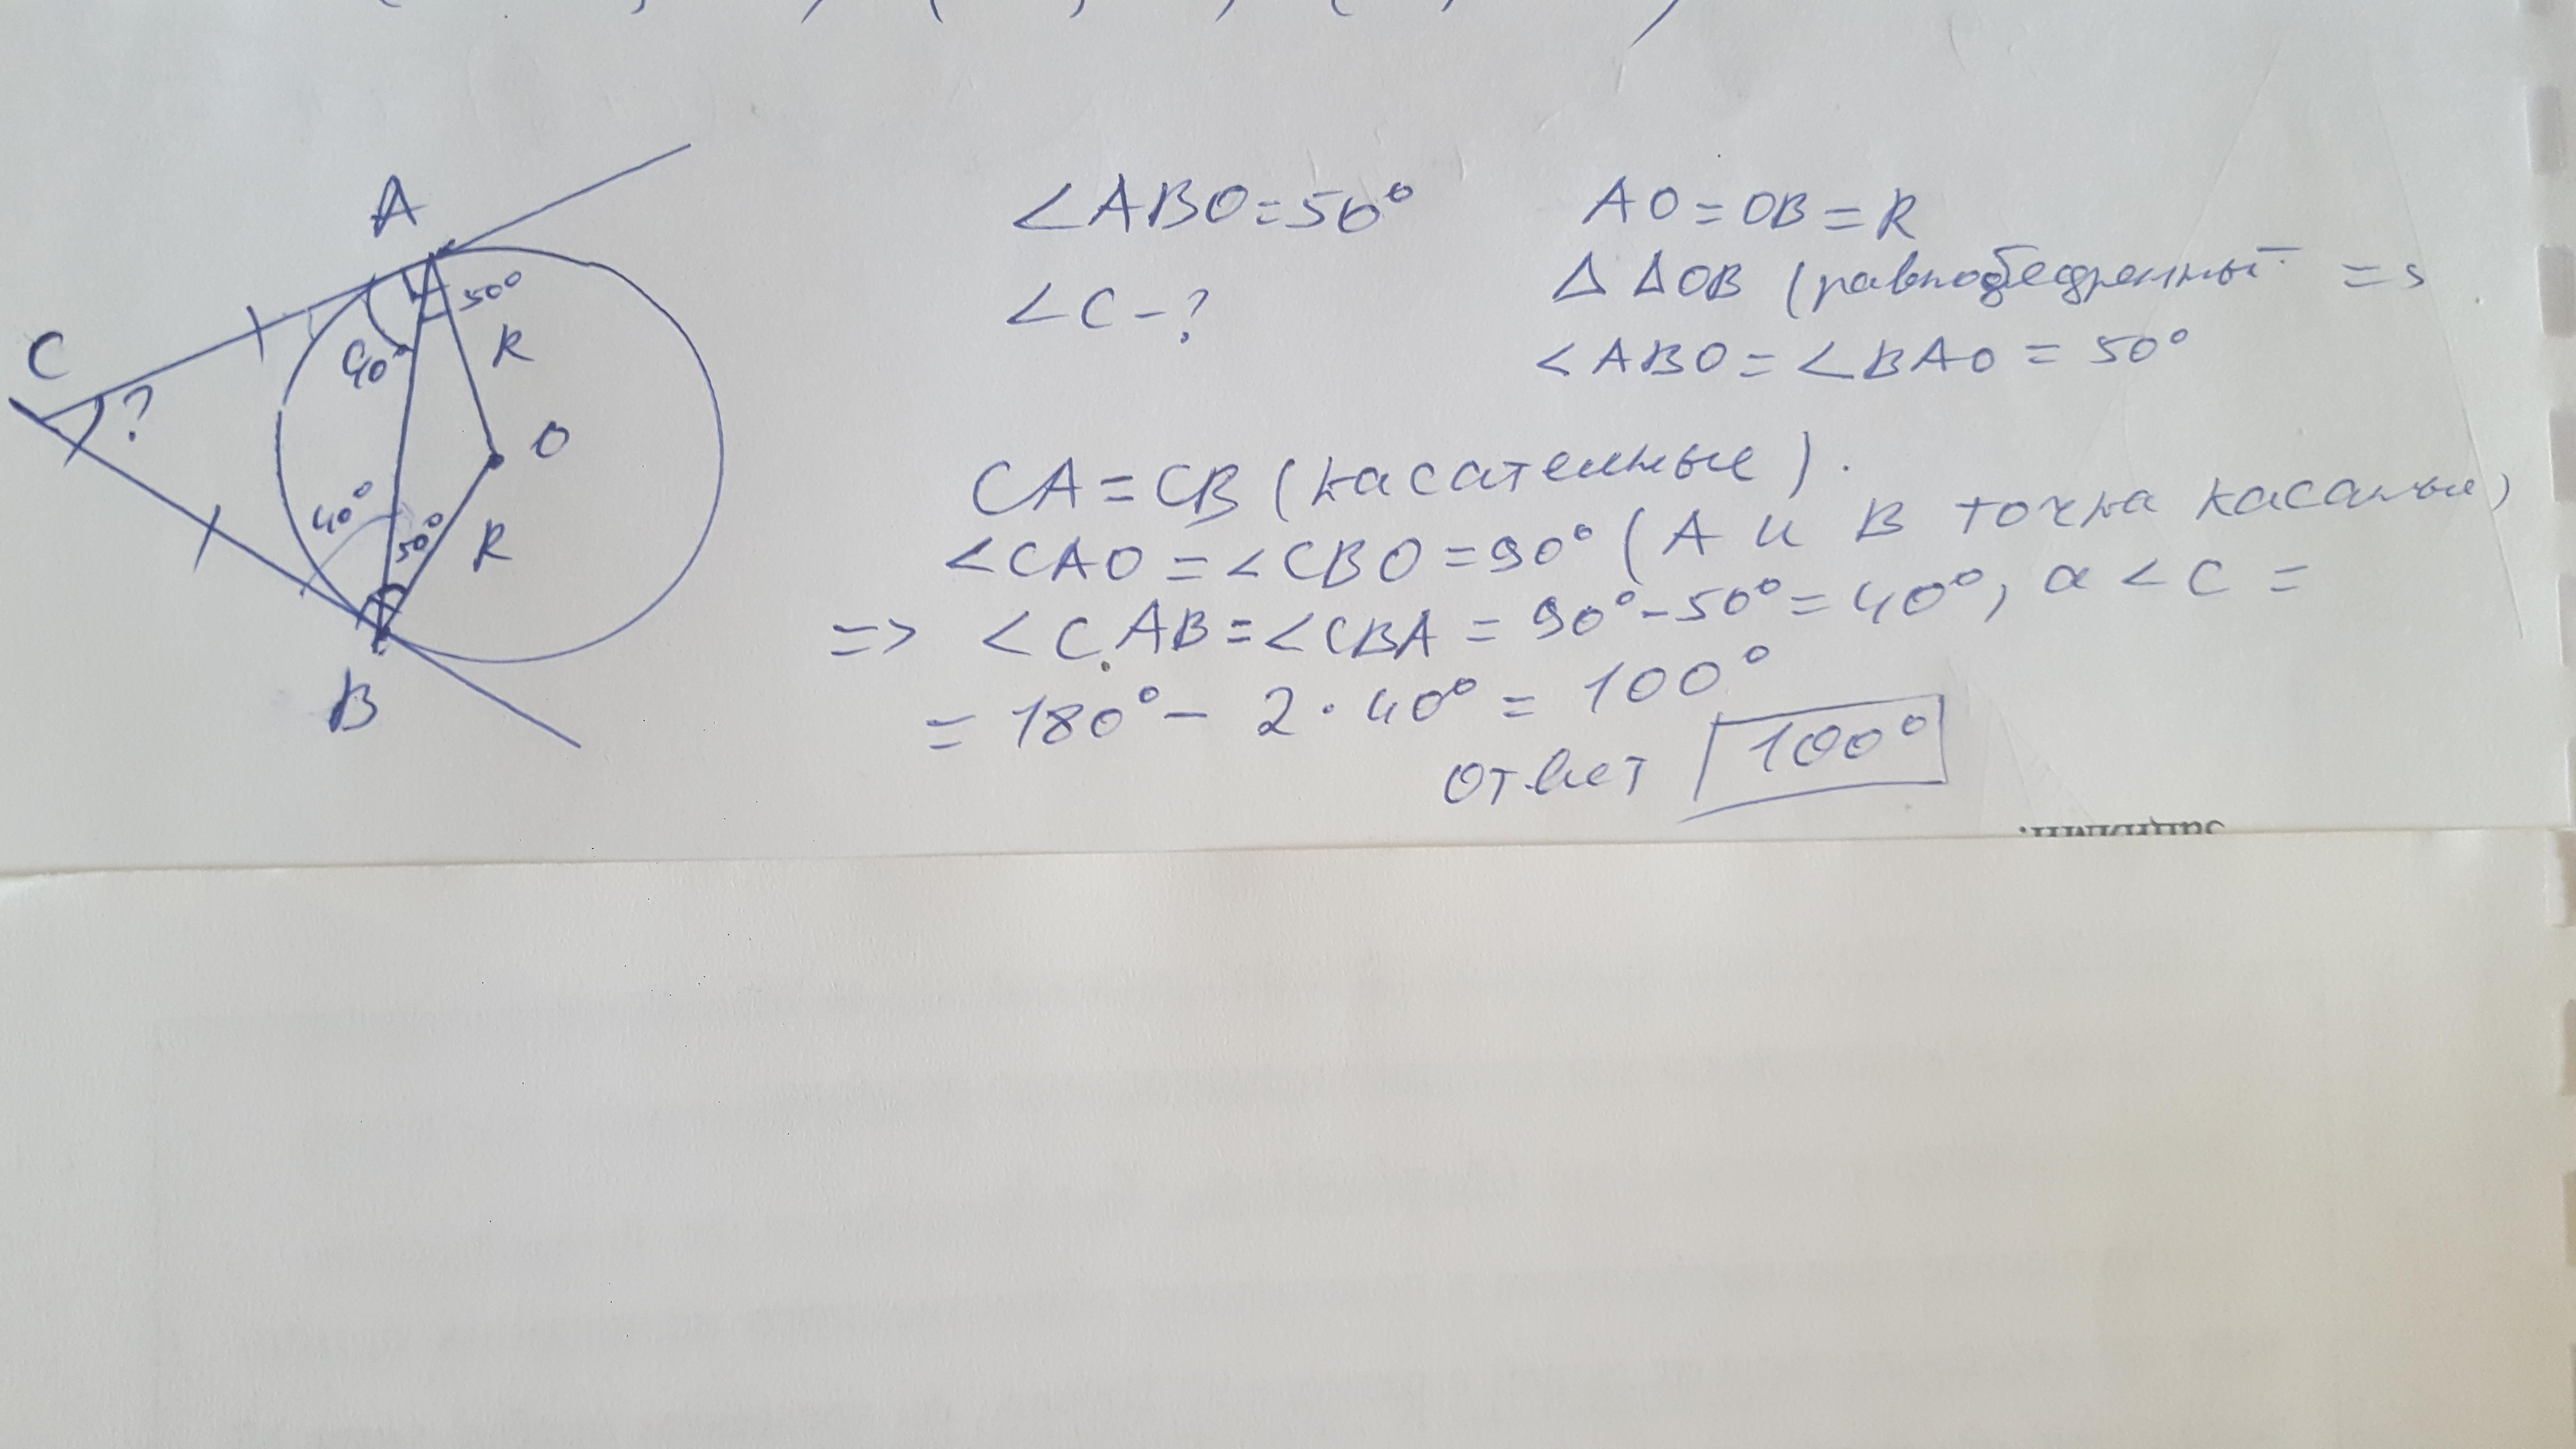 A
50°
C
R
40°
?
O
40°
50°
R
B
∠ABO=50°
∠C-?
AO=OB=R
Δ ΔOB (равнобедренный =>
∠ABO=∠BAO=50°
CA=CB (касательные).
∠CAO=∠CBO=90° (A и B точка касания)
=> ∠CAB=∠CBA=90°-50°=40°, а ∠C=
=180°-2·40°=100°
ответ 100°